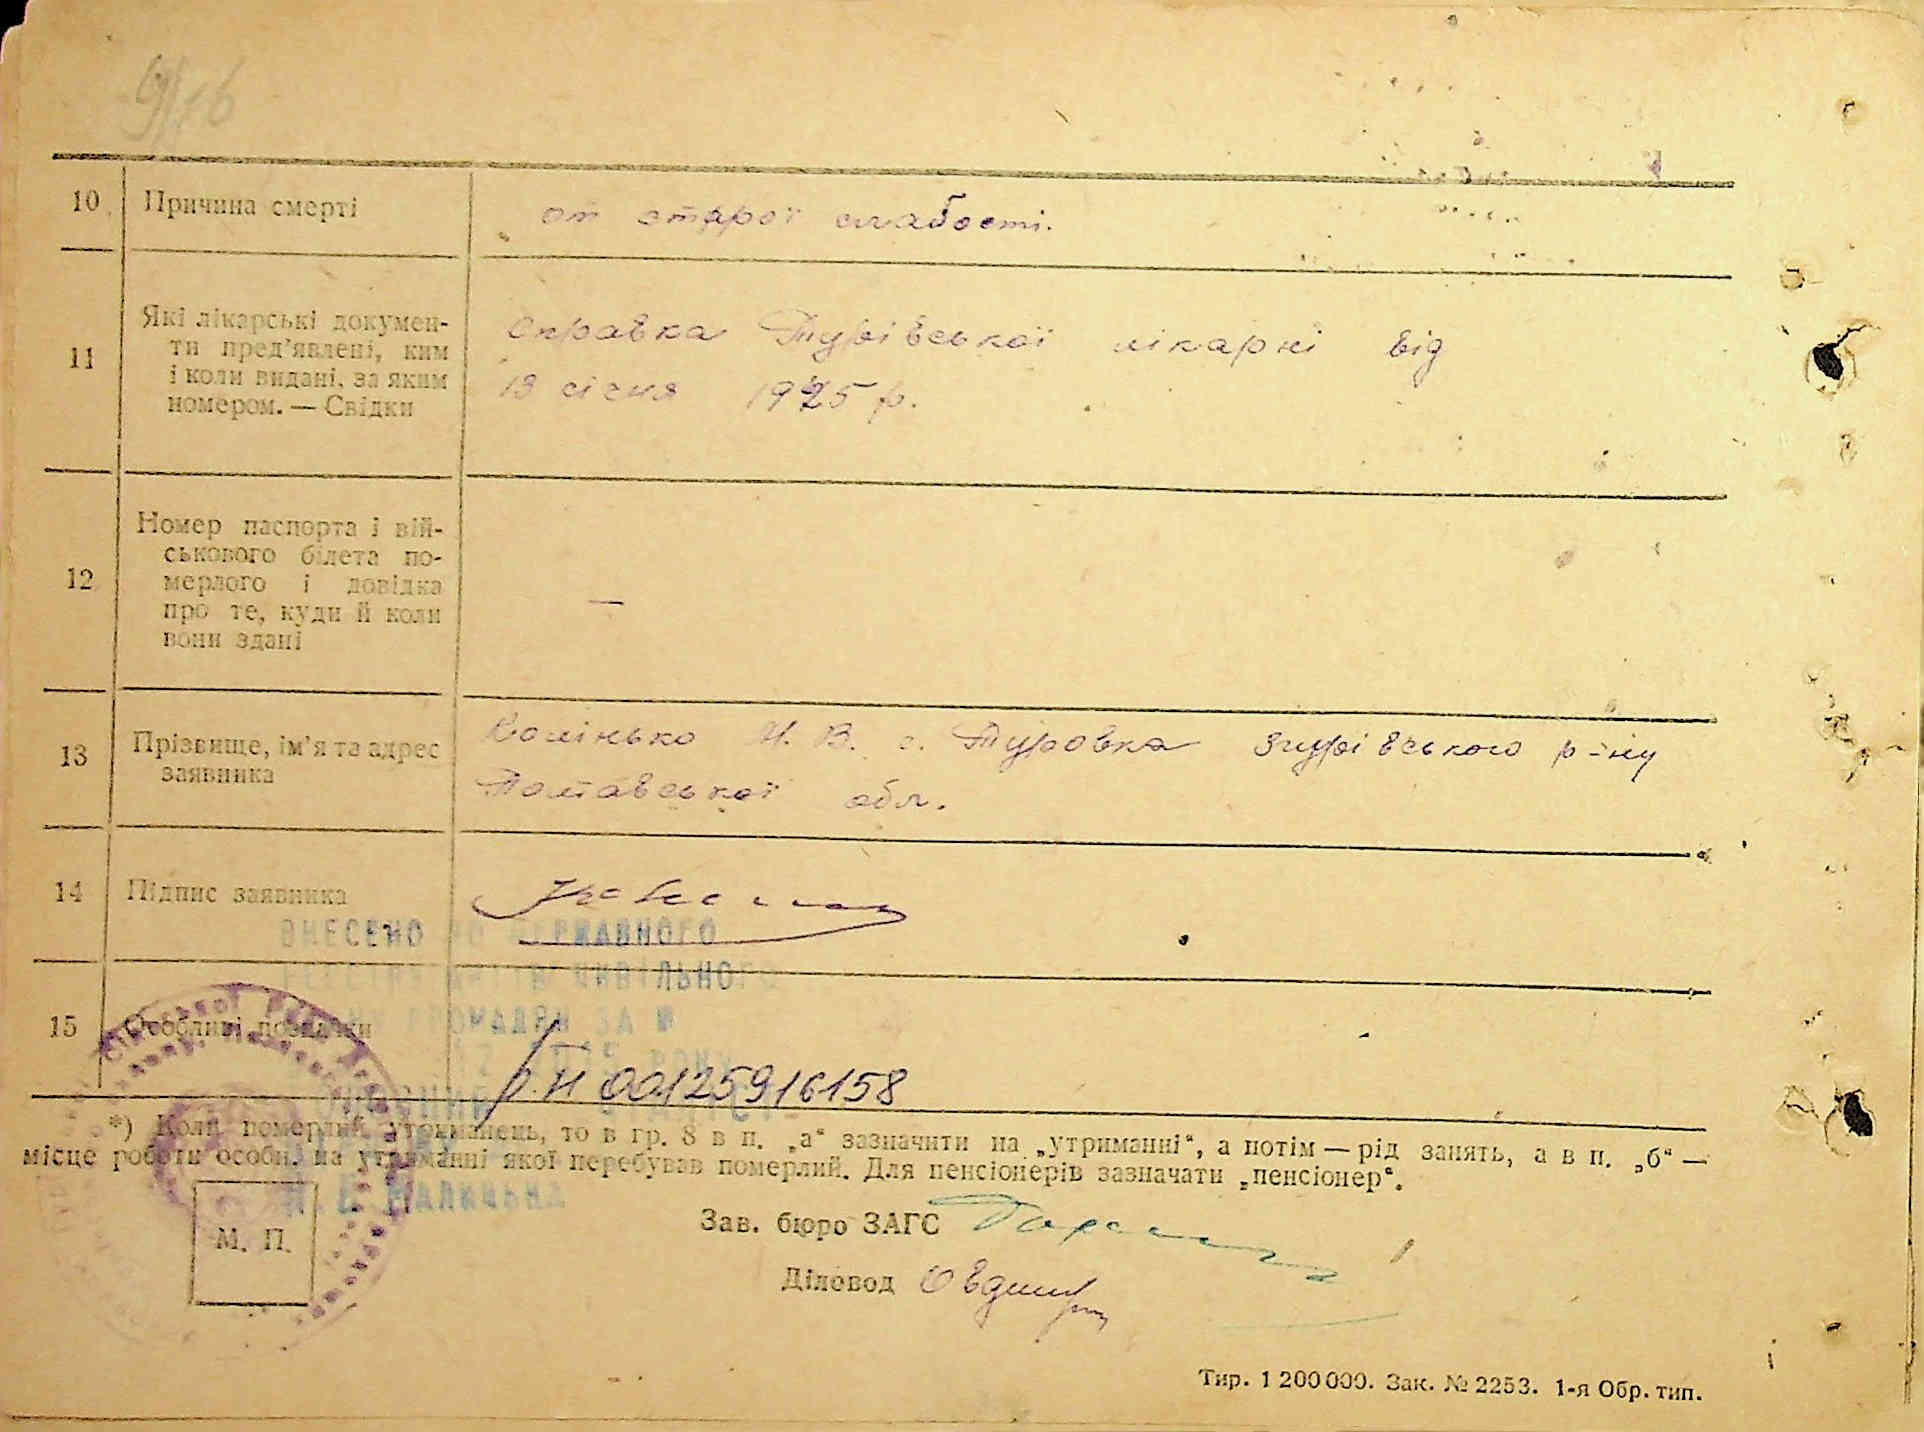 10 Причина смерті от старої слабості.
11 Які лікарські докумен-
ти пред'явлені, ким
і коли видані, за яким
номером. — Свідки
Справка Турівської лікарні від
13 січня 1925 р.
12 Номер паспорта і вій-
ськового білета по-
мерлого і довідка
про те, куди й коли
вони здані
—
13 Прізвище, ім'я та адрес
заявника
И. В. с. Туровка Згурівського р-ну
Полтавської обл.
14 Підпис заявника
ВНЕСЕНО ДО ДЕРЖАВНОГО
ЦИВІЛЬНОГО
ГРОМАДЯН ЗА №
15 Особливі позначки
РН 00125916158
*) Коли померлий утриманець, то в гр. 8 в п. „а“ зазначити на „утриманні“, а потім — рід занять, а в п. „б“ —
місце роботи особи, на утриманні якої перебував померлий. Для пенсіонерів зазначати „пенсіонер“.
М. П.
Зав. бюро ЗАГС
Діловод
Тир. 1 200 000. Зак. № 2253. 1-я Обр. тип.